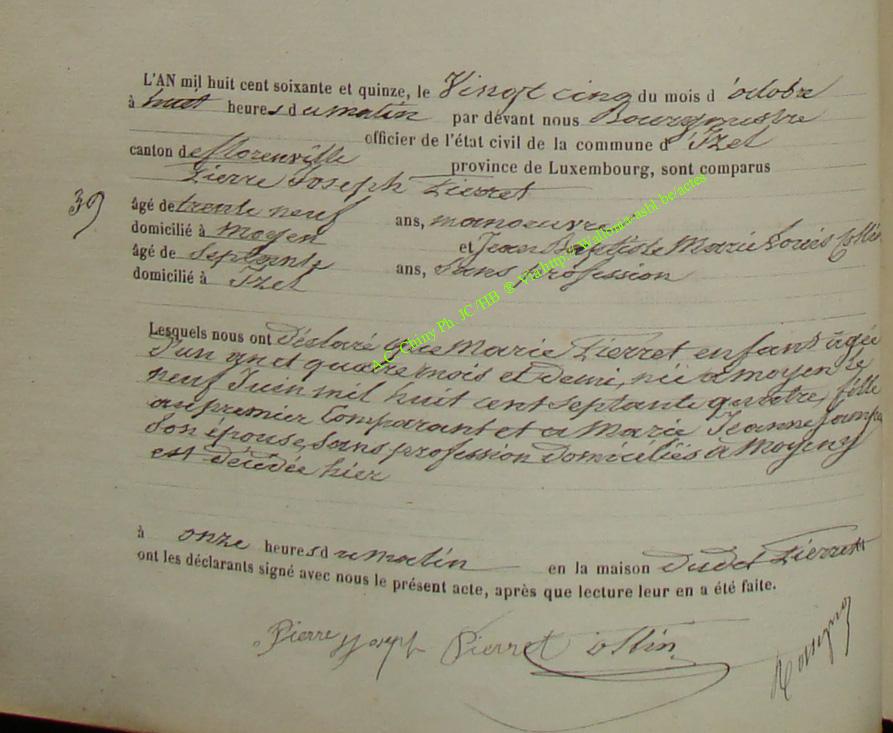 L'AN mil huit cent soixante et quinze, le Vingt cinq du mois d'octobre
à huit heures du matin par devant nous Bourgmestre
officier de l'état civil de la commune d'Izel
canton de florenville province de Luxembourg, sont comparus
Pierre Joseph Pierret
39
âgé de trente neuf ans, manoeuvre
domicilié à moyen et Jean Baptiste Marie Louis Collin
âgé de Septante ans, Sans profession
domicilié à Izel
Lesquels nous ont déclaré que Marie Pierret enfant âgée
d'un an et quatre mois et demi, née à moyen le
neuf Juin mil huit cent septante quatre, fille
au premier Comparant et à Marie Jeanne
Son épouse, Sans profession domiciliés à Moyen y
est décédée hier
à onze heures du matin en la maison dudit Pierret
ont les déclarants signé avec nous le présent acte, après que lecture leur en a été faite.
Pierre Joseph Pierret Collin
A.C. Chiny Ph. JC /HB ® Via http://www.luxroots-asbl.be/actes